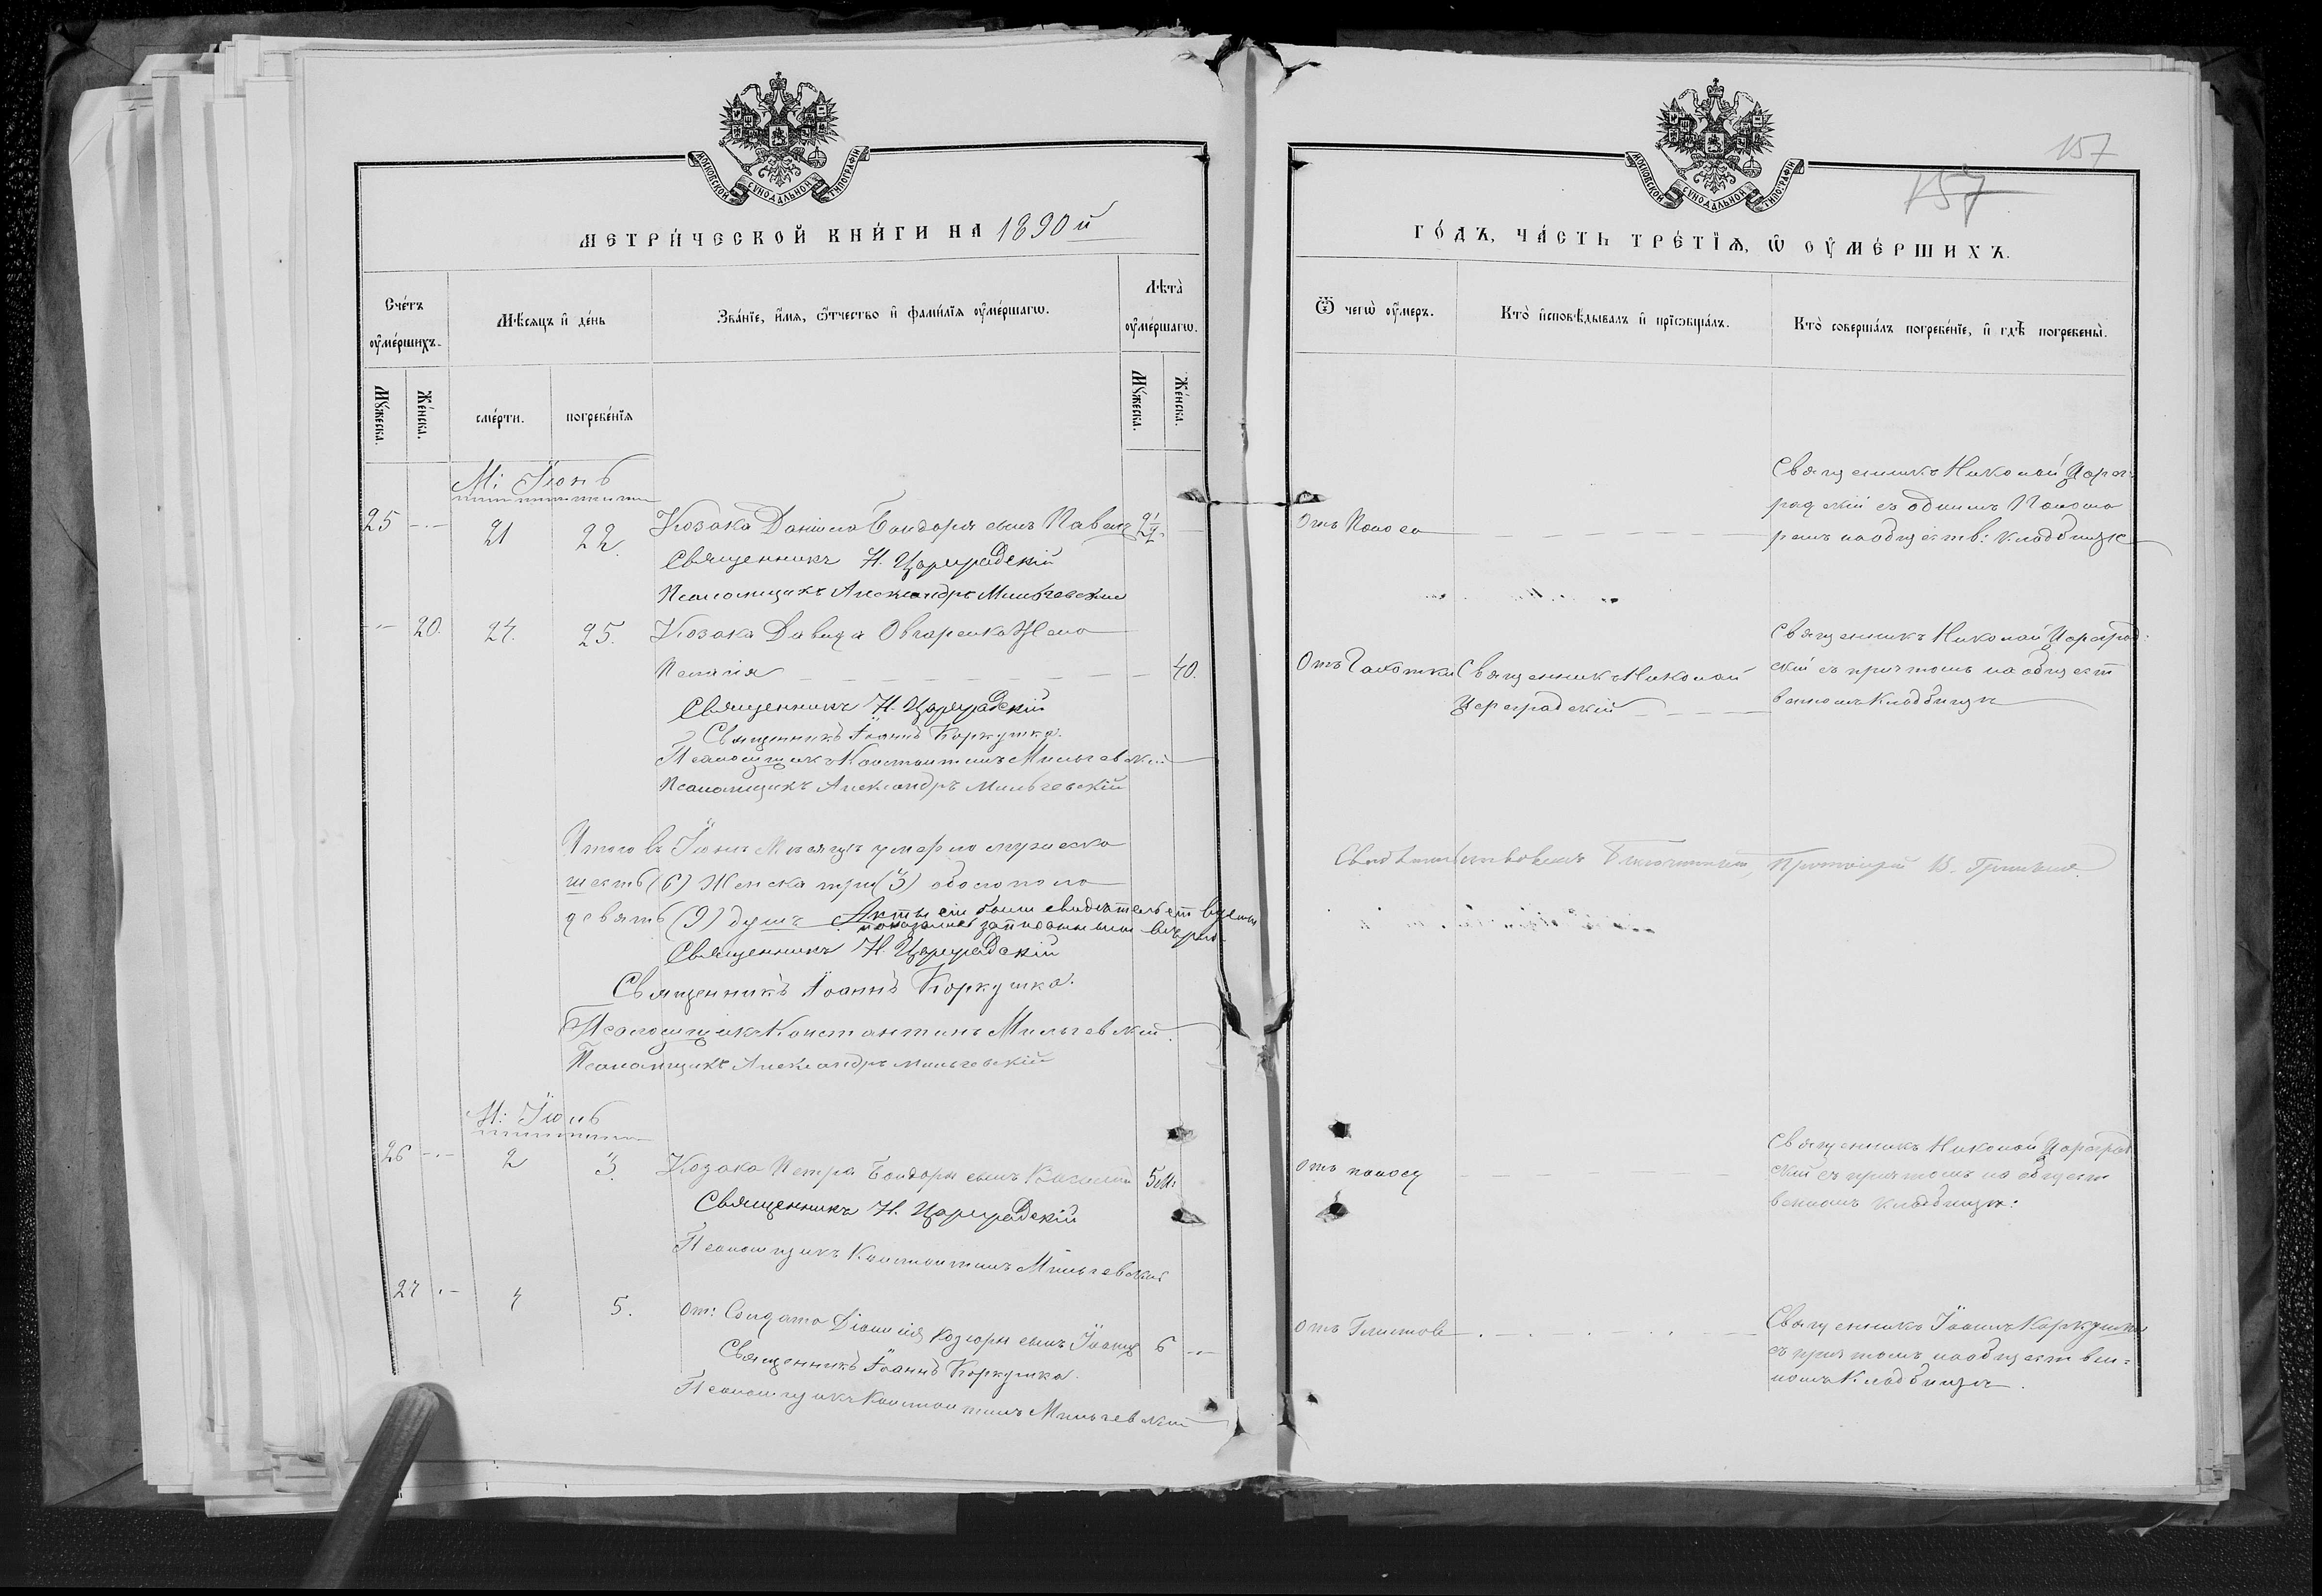 МОСКОВСКОЙ СѴНОДАЛЬНОЙ ТИПОГРАФІИ
МЕТРИ́ЧЕСКОЙ КНИ́ГИ НА 1890 й
Сче́тъ ᲂу҆ме́ршихъ.
Мѣ́сяцъ и҆ де́нь
Зва́нїе, и҆́мѧ, ѻ҆́тчество и҆ фами́лїѧ ᲂу҆ме́ршагѡ.
Лѣта̀ ᲂу҆ме́ршагѡ.
Мꙋ́жеска.
Же́нска.
сме́рти.
погребе́нїѧ
Мꙋ́жеска.
Же́нска.
М: Іюнь
25 21 22. Козака Даніила Бондаря сынъ Павелъ 2½
Священникъ Н. Цареградскій
Псаломщикъ Александръ Мильчевскій
20. 24. 25. Козака Давида Овчаренка Жена
Пелагія 40.
Священникъ Н. Цареградскій
Священникъ Іоаннъ Коркушка.
Псаломщикъ Константинъ Мильчевскій
Псаломщикъ Александръ Мильчевскій
Итого въ Іюнѣ Мѣсяцѣ умерло мужеска
шесть (6) Женска три (3) обоего пола
девять (9) душъ Акты сіи были свидѣтельствуемы
записанными вѣрно
Священникъ Н. Цареградскій
Священникъ Іоаннъ Коркушка.
Псаломщикъ Константинъ Мильчевскій.
Псаломщикъ Александръ Мильчевскій
М: Іюль
26 2 3. Козака Петра Бондаря сынъ Василій 5 м:
Священникъ Н. Цареградскій
Псаломщикъ Константинъ Мильчевскій
27 4 5. от: Солдата Діонисія сынъ Іоаннъ 6
Священникъ Іоаннъ Коркушка.
Псаломщикъ Константинъ Мильчевскій
157
157
МОСКОВСКОЙ СѴНОДАЛЬНОЙ ТИПОГРАФІИ
ГО́ДЪ, ЧА́СТЬ ТРЕ́ТЇѦ, Ѡ҆ ОУ҆МЕ́РШИХЪ.
Ѿ чегѡ̀ ᲂу҆́меръ.
Кто̀ и҆сповѣ́дывалъ и҆ прїѡбща́лъ.
Кто̀ соверша́лъ погребе́нїе, и҆ гдѣ̀ погребены̀.
Отъ Поноса
Священникъ Николай Царег-
радскій съ однимъ Понома
ремъ на обществ: кладбищѣ
Отъ Чахотки
Священникъ Николай
Цареградскій
Священникъ Николай Цареград:
скій съ причтомъ на общест
венномъ Кладбищѣ
Свидѣтельствовалъ Благочинный, Протоіерей В.
Отъ поносу
Священникъ Николай Цареград
скій съ причтомъ на общест
венномъ кладбищѣ:
Отъ Глистовъ
Священникъ Іоаннъ Коркушка
съ причтомъ на обществен=
номъ Кладбищѣ.